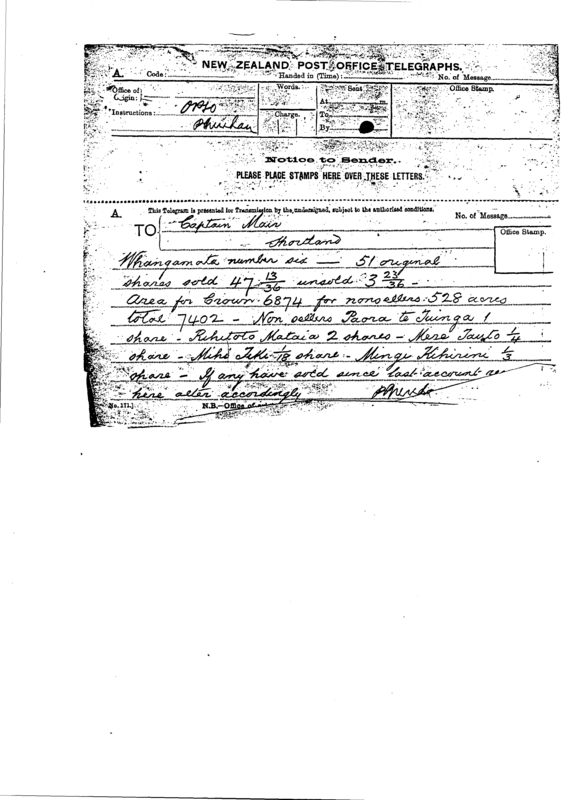 NEW ZEALAND POST OFFICE TELEGRAPHS.
A. Code: Handed in (Time): No. of Message
Office of Origin: Words. Sent Office Stamp.
At m.
Instructions: Charge. To
By
Notice to Sender.
PLEASE PLACE STAMPS HERE OVER THESE LETTERS.
A. This Telegram is presented for Transmission by the undersigned, subject to the authorised conditions. No. of Message
TO Captain Mair Office Stamp.
Shortland
Whangamata number six — 51 original
shares sold 47 13/36 unsold 3 23/36 -
Area for Crown 6874 for nonsellers 528 acres
total 7402 - Non sellers Paora te Tuinga 1
share - Rihitoto Mataia 2 shares - Mere 1/4
share - Mihi 1/18 share - Kihirini 1/3
share - If any have sold since last account
here alter accordingly
No. 171.] N.B.—Office of